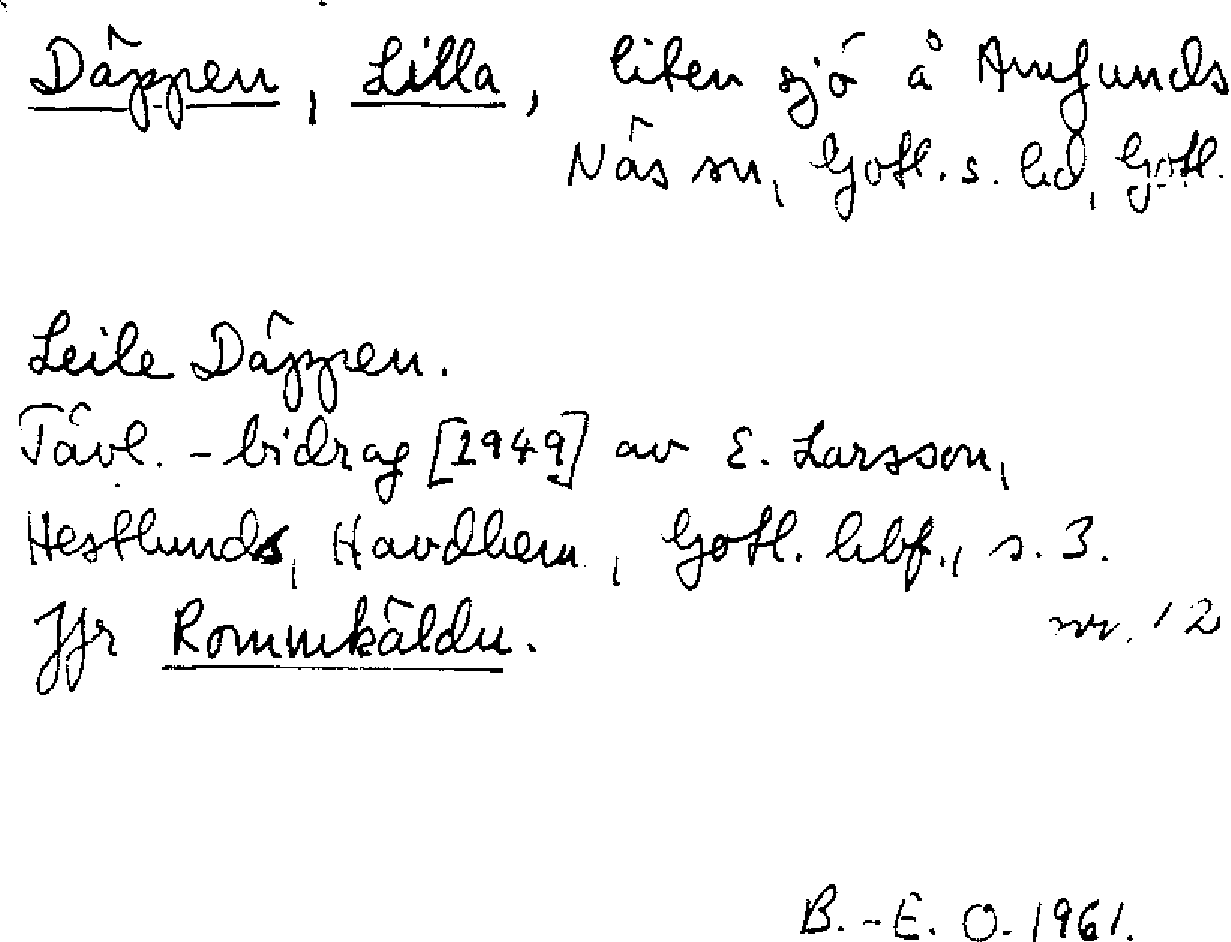 Däppen, Lilla, liten sjö å Amfunds
Näs sn, Gotl. s. hd, Gotl.
Leile Däppen.
Tävl.-bidrag [1949] av E. Larsson,
Hestlunds, Havdhem, Gotl. hbf., s. 3.
nr. 12
Jfr Rommkäldu.
B.-E. O. 1961.